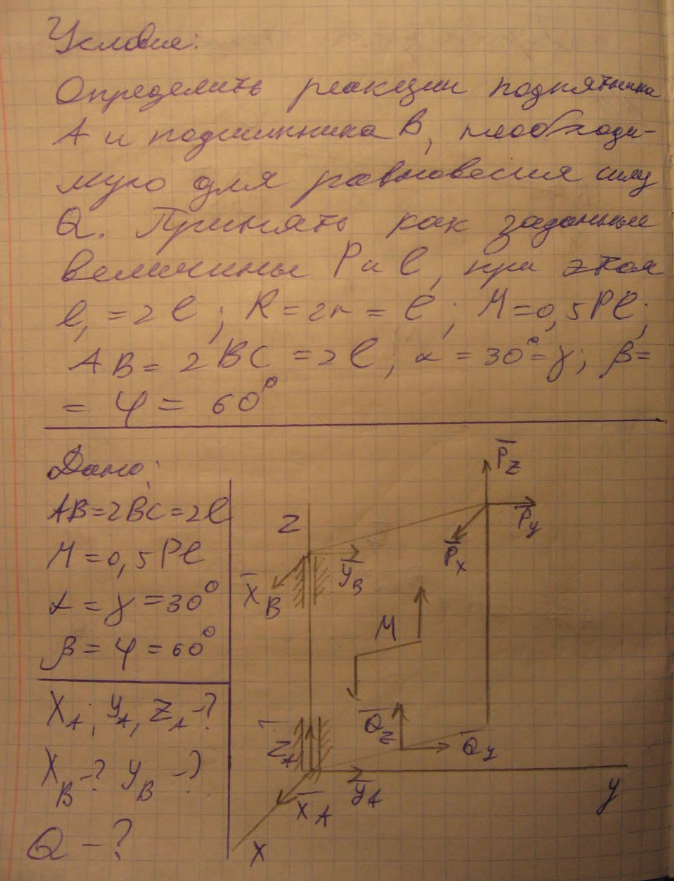 Условие:
Определить реакции подпятника
А и подшипника В, необходи-
мую для равновесия силу
Q. Принять как заданные
величины P и l, при этом
l₁ = 2l; R = 2r = l; M = 0,5Pl;
AB = 2BC = 2l, α = 30° = γ; β =
= φ = 60°
Дано:
AB = 2BC = 2l
M = 0,5Pl
α = γ = 30°
β = φ = 60°
X_A; Y_A, Z_A - ?
X_B - ? Y_B - ?
Q - ?
P̅_Z
Z
P̅_y
P̅_x
X̅_B
y̅_B
M
Z̅_A
Q̅_Z
Q̅_y
y̅_A
X̅_A
y
X